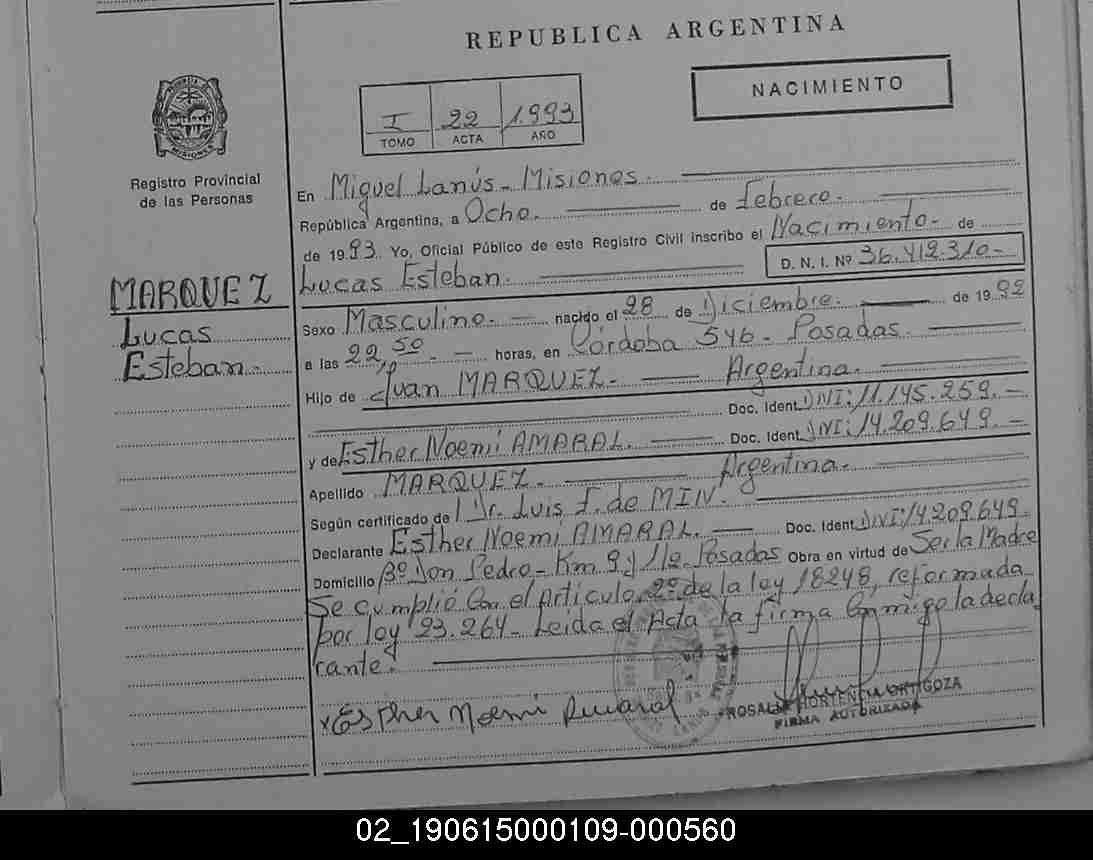 REPUBLICA ARGENTINA
NACIMIENTO
I 22 1.993
TOMO ACTA AÑO
PROVINCIA DE MISIONES
Registro Provincial
de las Personas
MARQUEZ
Lucas
Esteban.-
En Miguel Lanús - Misiones.
República Argentina, a Ocho. de Febrero.
de 1993. Yo, Oficial Público de este Registro Civil inscribo el Nacimiento - de
Lucas Esteban. D. N. I. Nº 36.412.310-
Sexo Masculino. - nacido el 28 de Diciembre. de 1992
a las 22,50 - - horas, en Córdoba 546 - Posadas.
Hijo de Juan MARQUEZ. - Argentina.
Doc. Ident. DNI: 11.145.259.-
y de Esther Noemí AMARAL. Doc. Ident. DNI: 14.209.649.-
Apellido MARQUEZ. Argentina.
Según certificado de Dr. Luis F. de MIN.
Declarante Esther Noemí AMARAL. Doc. Ident. DNI: 14.209.649.
Domicilio Bº Don Pedro - Km 9 y 1/2 Posadas Obra en virtud de Ser la Madre
Se cumplió Con el Artículo 2º de la ley 18248, reformada
por ley 23.264 - Leída el Acta la firma Conmigo la decla
rante.
x Esther Noemi Amaral
ROSALIA HORTENCIA ORTIGOZA
FIRMA AUTORIZADA
02_190615000109-000560